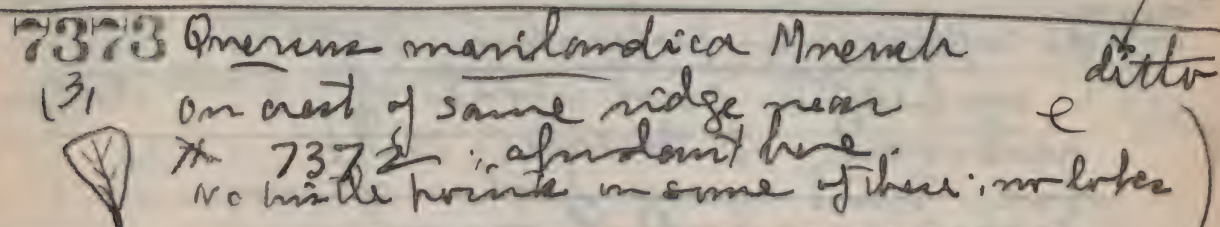 7373 Quercus marilandica Muench ditto
(3) on crest of same ridge near e
7372 ; abundant here.
No bristle points on some of these ; no lobes